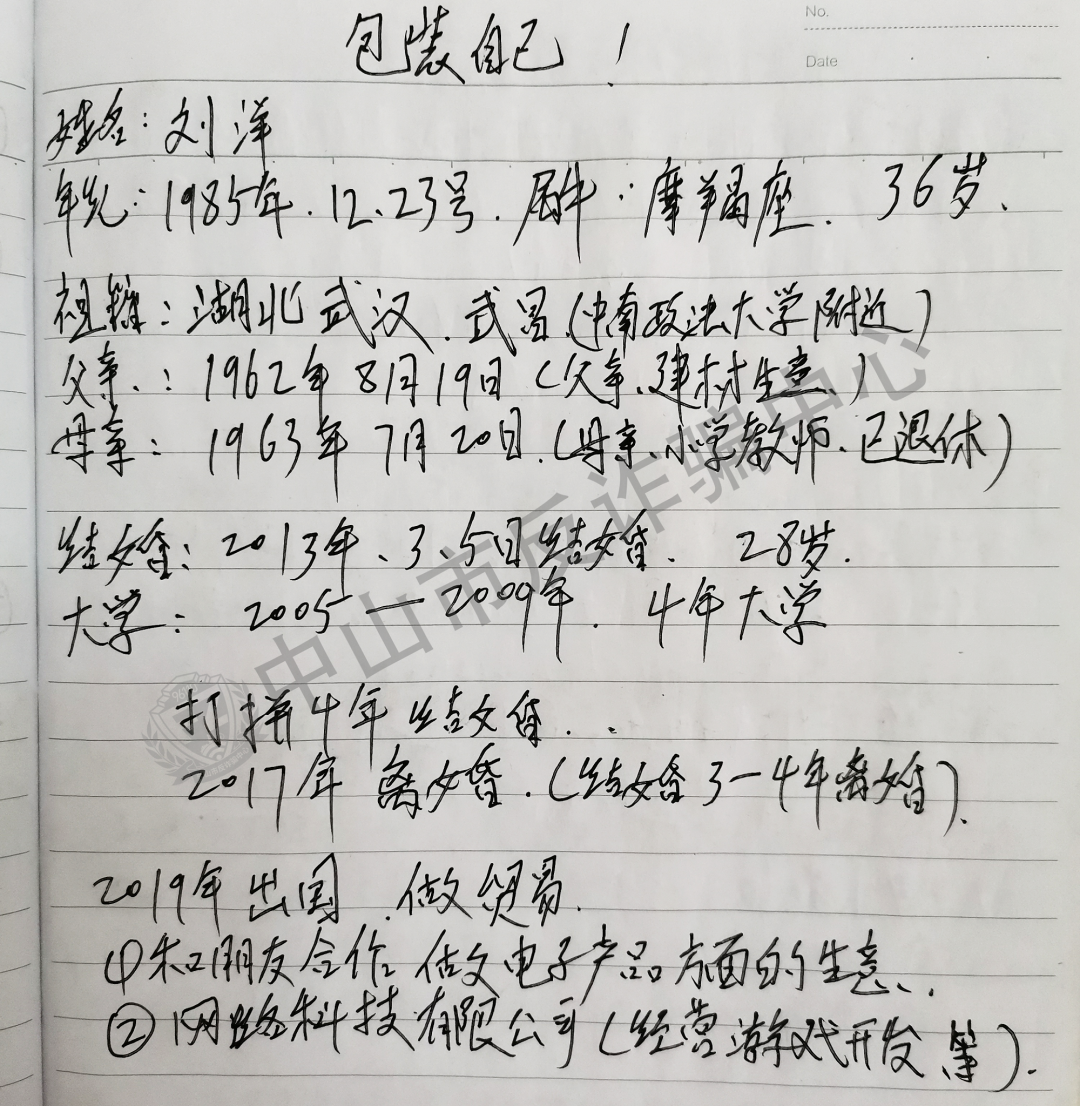 No.
Date
包装自己！
姓名：刘洋
年先：1985年.12.23号.属牛：摩羯座. 36岁.
祖籍：湖北武汉.武昌(中南政法大学附近)
父亲.：1962年8月19日(父亲.建材生意.)
母亲：1963年7月20日.(母亲.小学教师.已退休)
结婚：2013年.3.5日结婚. 28岁.
大学：2005—2009年. 4年大学
打拼4年结婚..
2017年离婚.(结婚3-4年离婚).
2019年出国.做贸易.
①和朋友合作做电子产品方面的生意.
②网络科技有限公司(经营游戏开发等).
中山市反诈骗中心